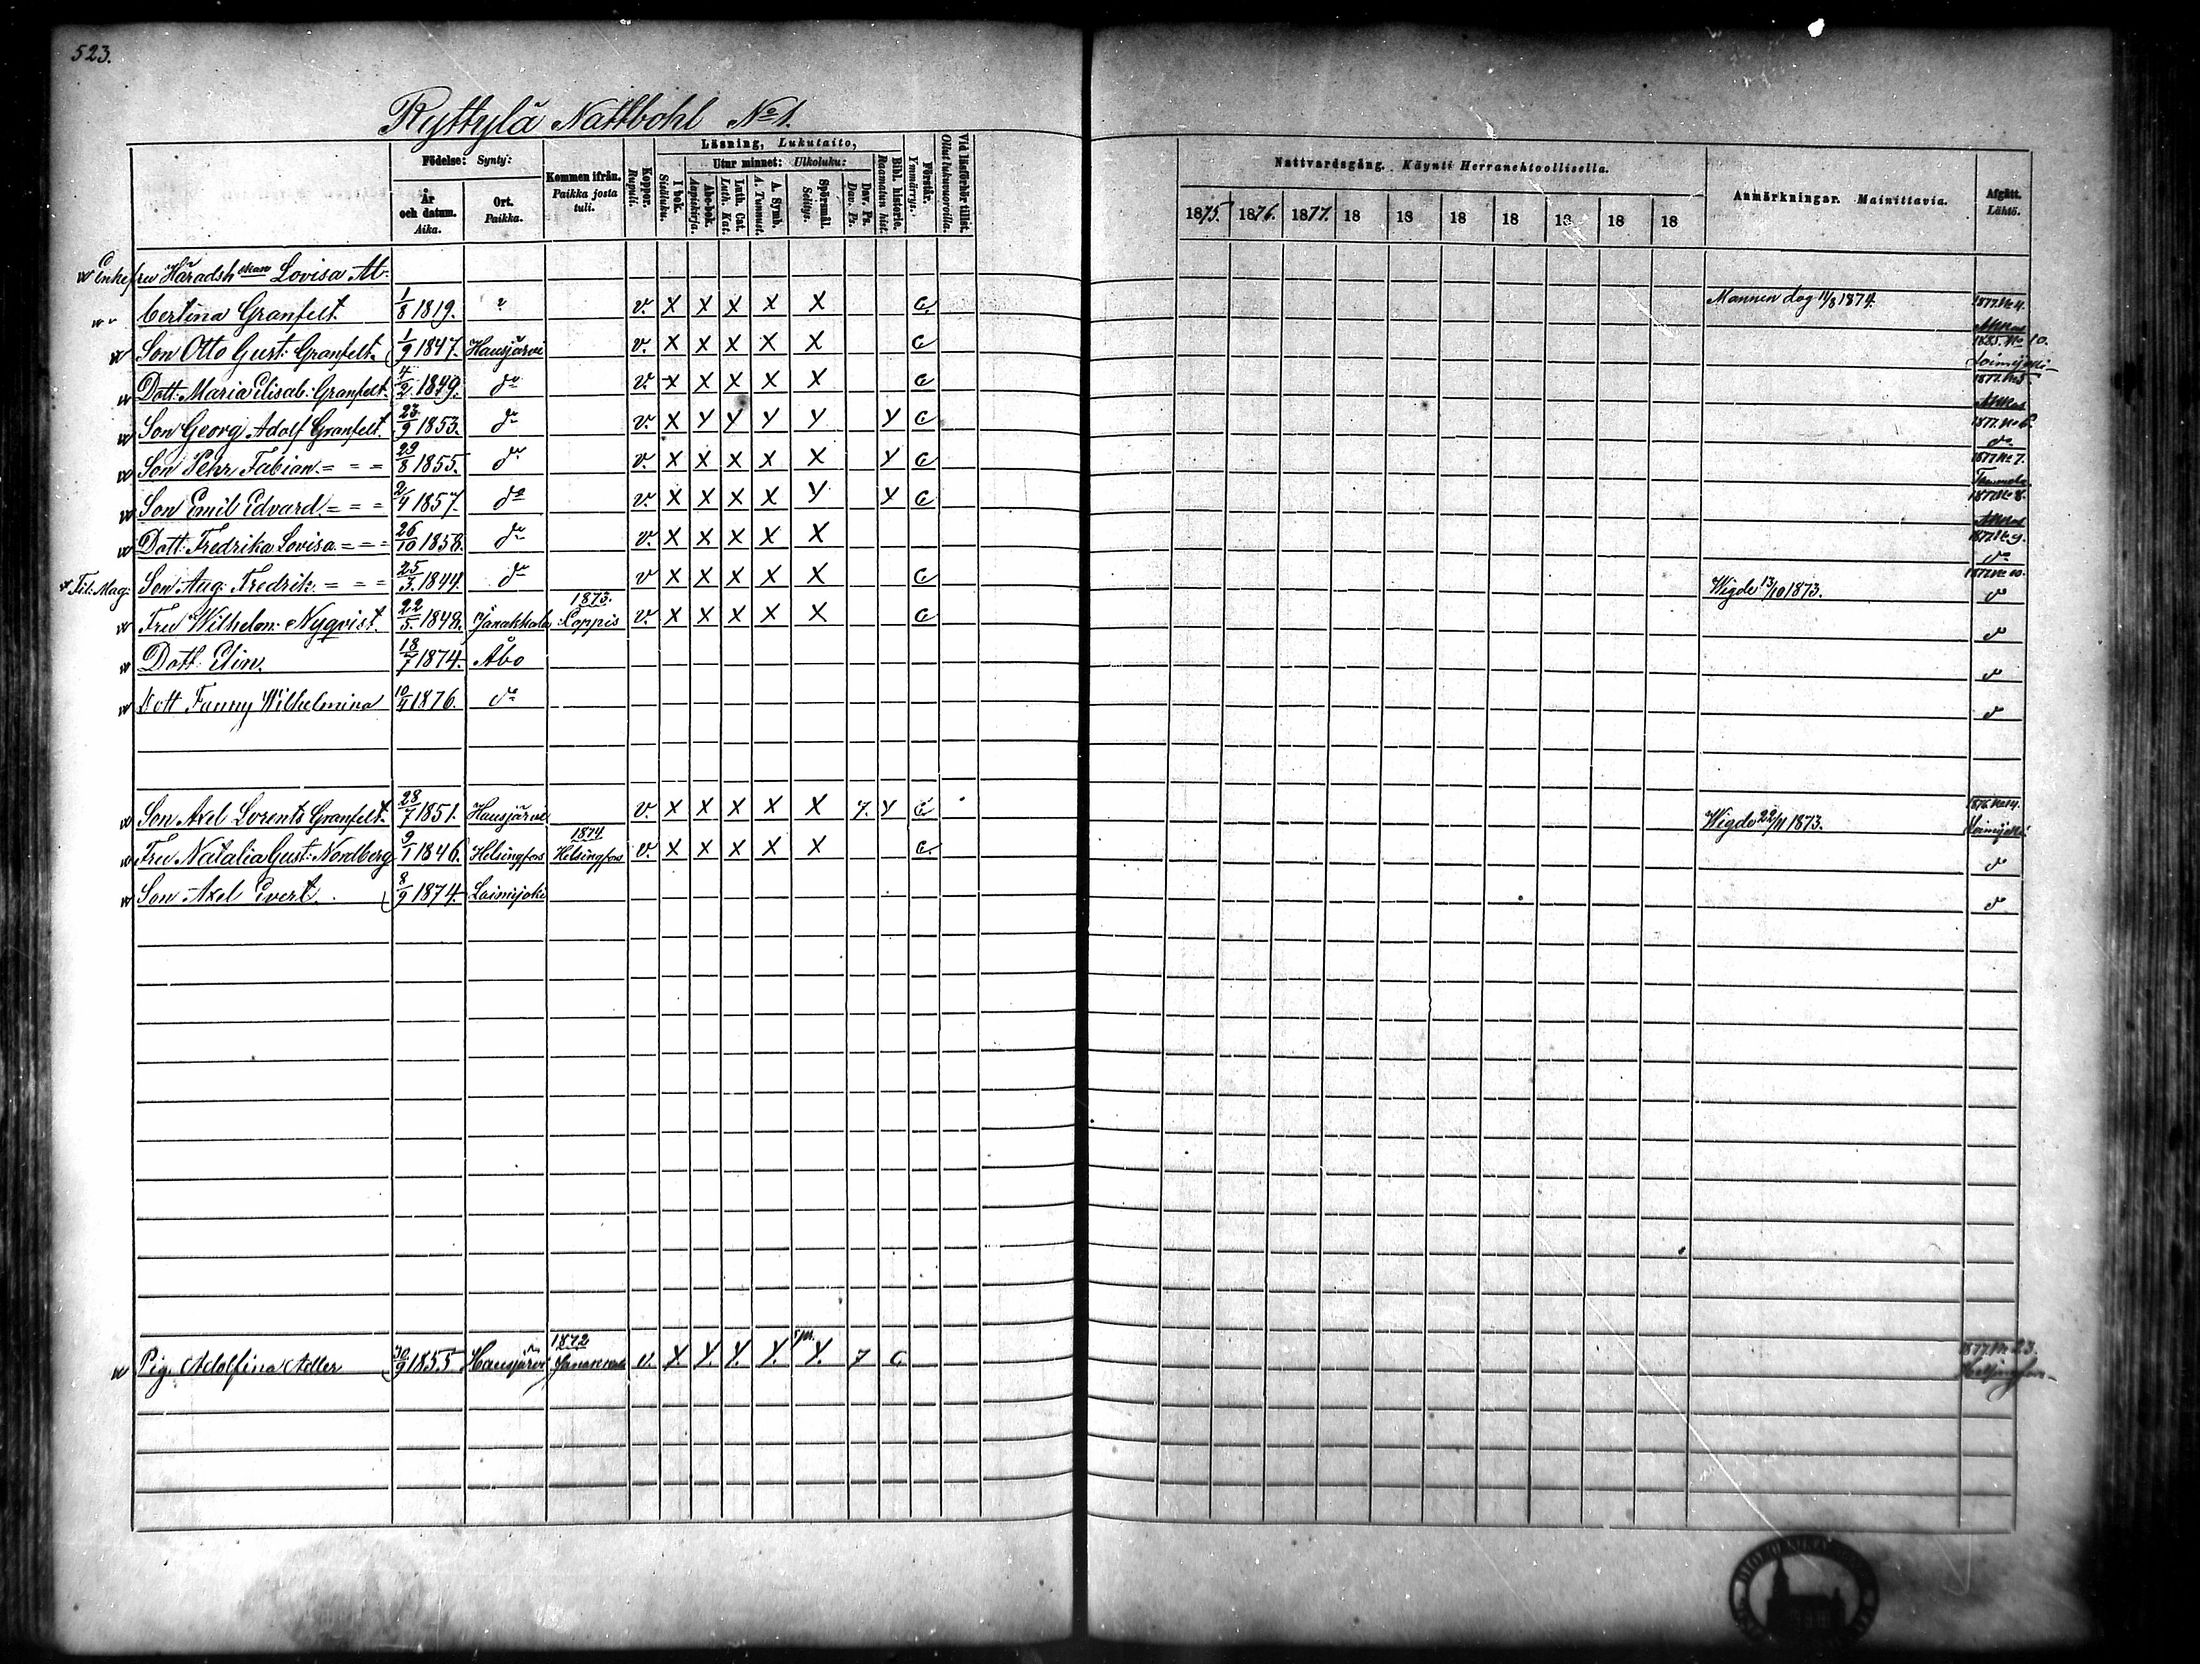 523.
Ryttylä Nattbohl No 1.
Födelse: Synty:
År och datum. Aika.
Ort. Paikka.
Kommen ifrån. Paikka josta tuli.
Koppor. Rupuli.
Läsning, Lukutaito,
I bok. Sisäluku.
Utur minnet: Ulkoluku:
Abc-bok. Aapiskirja.
Luth. Cat. Luth. Kat.
A. Symb. A. Tunnust.
Spörsmål. Selitys.
Dav. Ps. Dav. Ps.
Bibl. historie. Raamatun hist.
Förstår. Ymmärrys.
Vid läsförhör tillst. Ollut lukuvuoroilla.
Nattvardsgång. Käynti Herranehtoollisella.
1875 1876. 1877. 18 18 18 18 18 18 18
Anmärkningar. Mainittavia.
Afgått. Lähtö.
Enkefru Häradsh skan Lovisa Al-
bertina Granfelt 1/8 1819. v. X X X X X C Mannen dog 11/8 1874. 1877. No 4.
Son Otto Gust: Granfelt. 1/9 1847. Hausjärvi v. X X X X X C 1885. No 10. Loimijoki
Dott. Maria Elisab: Granfelt. 4/2 1849. do v. X X X X X C 1877. No 5
Son Georg Adolf Granfelt. 23/9 1853. do v. X Y Y Y Y Y C 1877. No 6. do
Son Pehr Fabian = = = 29/8 1855. do v. X X X X X Y C 1877 No 7.
Son Emil Edvard = = = 2/4 1857. do v. X X X X Y Y C 1877 No 8.
Dott. Fredrika Lovisa = = = 26/10 1858. do v. X X X X X 1877. No 9. do
Fil: Mag: Son Aug. Fredrik = = = 25/3 1844. do v X X X X X C Wigde 13/10 1873. 1877 No 10. do
Fru Wilhelm: Nyqvist. 22/5 1848. Janakkala 1873. Loppis v. X X X X X C do
Dott. Elin. 18/7 1874. Åbo do
Dott Fanny Wilhelmina 10/4 1876. do do
Son Axel Lorents Granfelt. 28/7 1851. Hausjärvi v. X X X X X 7. Y C Wigde 22/11 1873. 1876 No 14. Loimijoki
Fru Natalia Gust: Nordberg 9/1 1846. Helsingfors 1874 Helsingfors v. X X X X X C. do
Son Axel Evert. 8/9 1874. Loimijoki do
Pig. Adolfina Adler 30/9 1855 Hausjärvi 1872 Janakkala v. Y. Y. Y. Y. Y. 7 C 1877. No 23. Helsingfors